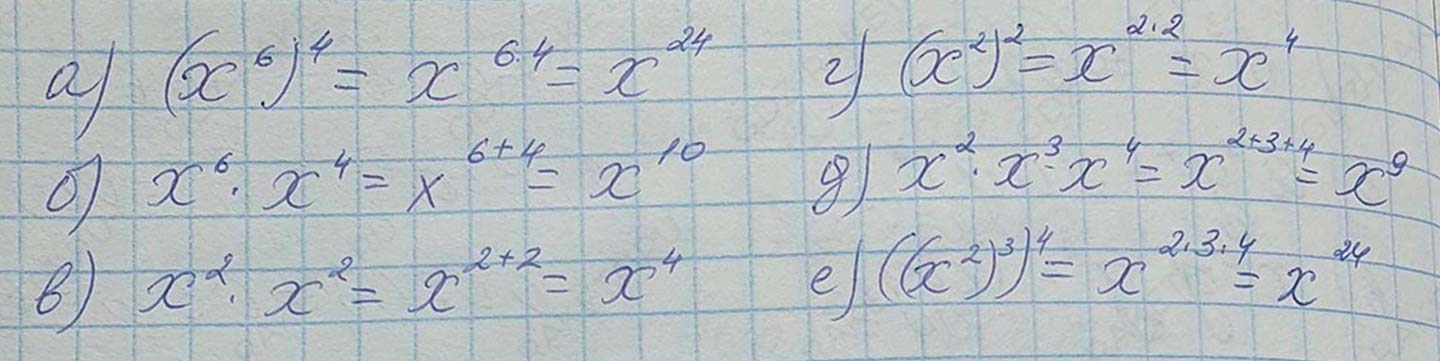 а) (x⁶)⁴ = x⁶·⁴ = x²⁴
б) x⁶ · x⁴ = x⁶⁺⁴ = x¹⁰
в) x² · x² = x²⁺² = x⁴
г) (x²)² = x²·² = x⁴
д) x² · x³ · x⁴ = x²⁺³⁺⁴ = x⁹
е) ((x²)³)⁴ = x²·³·⁴ = x²⁴